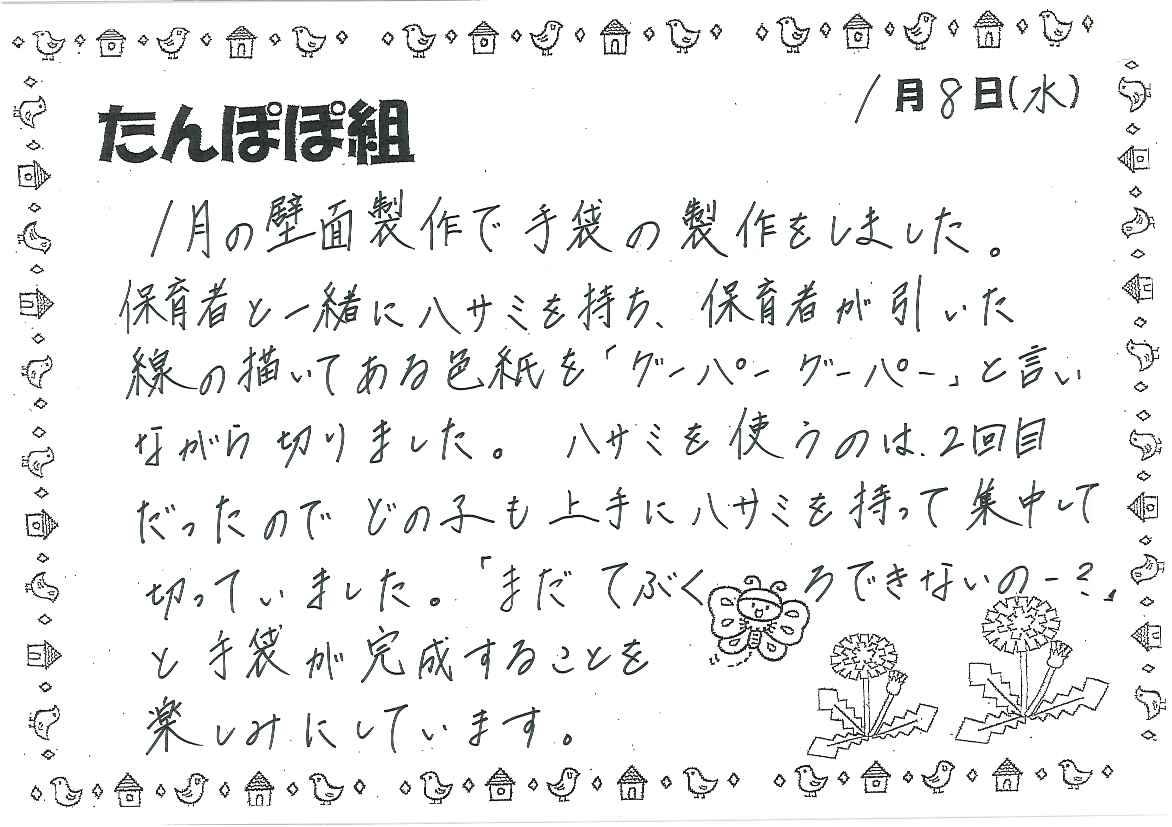 1月8日(水)
たんぽぽ組
1月の壁面製作で手袋の製作をしました。
保育者と一緒にハサミを持ち、保育者が引いた
線の描いてある色紙を「グーパーグーパー」と言い
ながら切りました。ハサミを使うのは、2回目
だったのでどの子も上手にハサミを持って集中して
切っていました。「まだてぶくろできないのー?」
と手袋が完成することを
楽しみにしています。